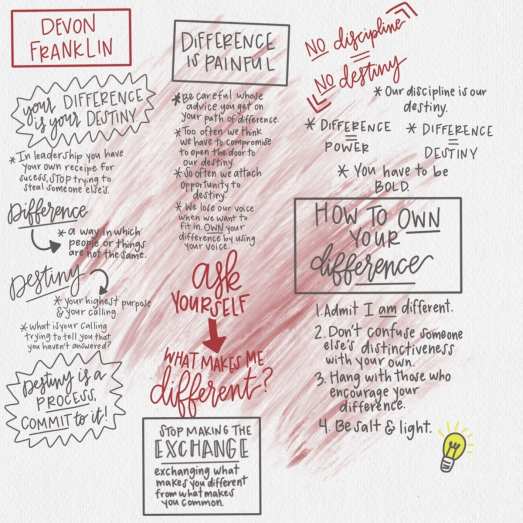 DEVON
FRANKLIN
your DIFFERENCE
is your DESTINY
* In leadership you have
your own recipe for
sucess, STOP trying to
steal someone else's.
Difference
* a way in which
people or things
are not the same.
Destiny
* your highest purpose
& your calling
* what is your calling
trying to tell you that
you haven't answered?
Destiny is a
PROCESS,
COMMIT to it!
DIFFERENCE
IS PAINFUL
* Be careful whose
advice you get on
your path of difference.
* Too often we think
we have to compromise
to open the door to
our destiny.
* So often we attach
opportunity to
destiny.
* We lose our voice
when we want to
fit in. OWN your
difference by using
your voice.
ask
YOURSELF
WHAT MAKES ME
different?
STOP MAKING THE
EXCHANGE
exchanging what
makes you different
from what makes
you common.
NO discipline
=
NO destiny
* Our discipline is our
destiny.
* DIFFERENCE
=
POWER
* DIFFERENCE
=
DESTINY
* You have to be
BOLD.
HOW TO OWN
YOUR
difference
1. Admit I am different.
2. Don't confuse someone
else's distinctiveness
with your own.
3. Hang with those who
encourage your
difference.
4. Be salt & light.